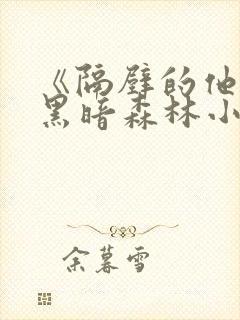 《隔壁的他
黑暗森林小
余暮雪